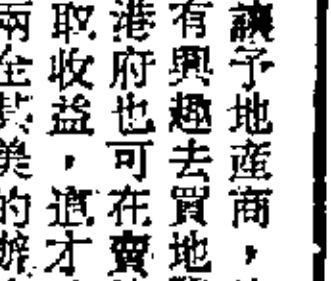 讓予地產商，
有興趣去買地
港府也可在賣
取收益，這才
兩全其美的辦